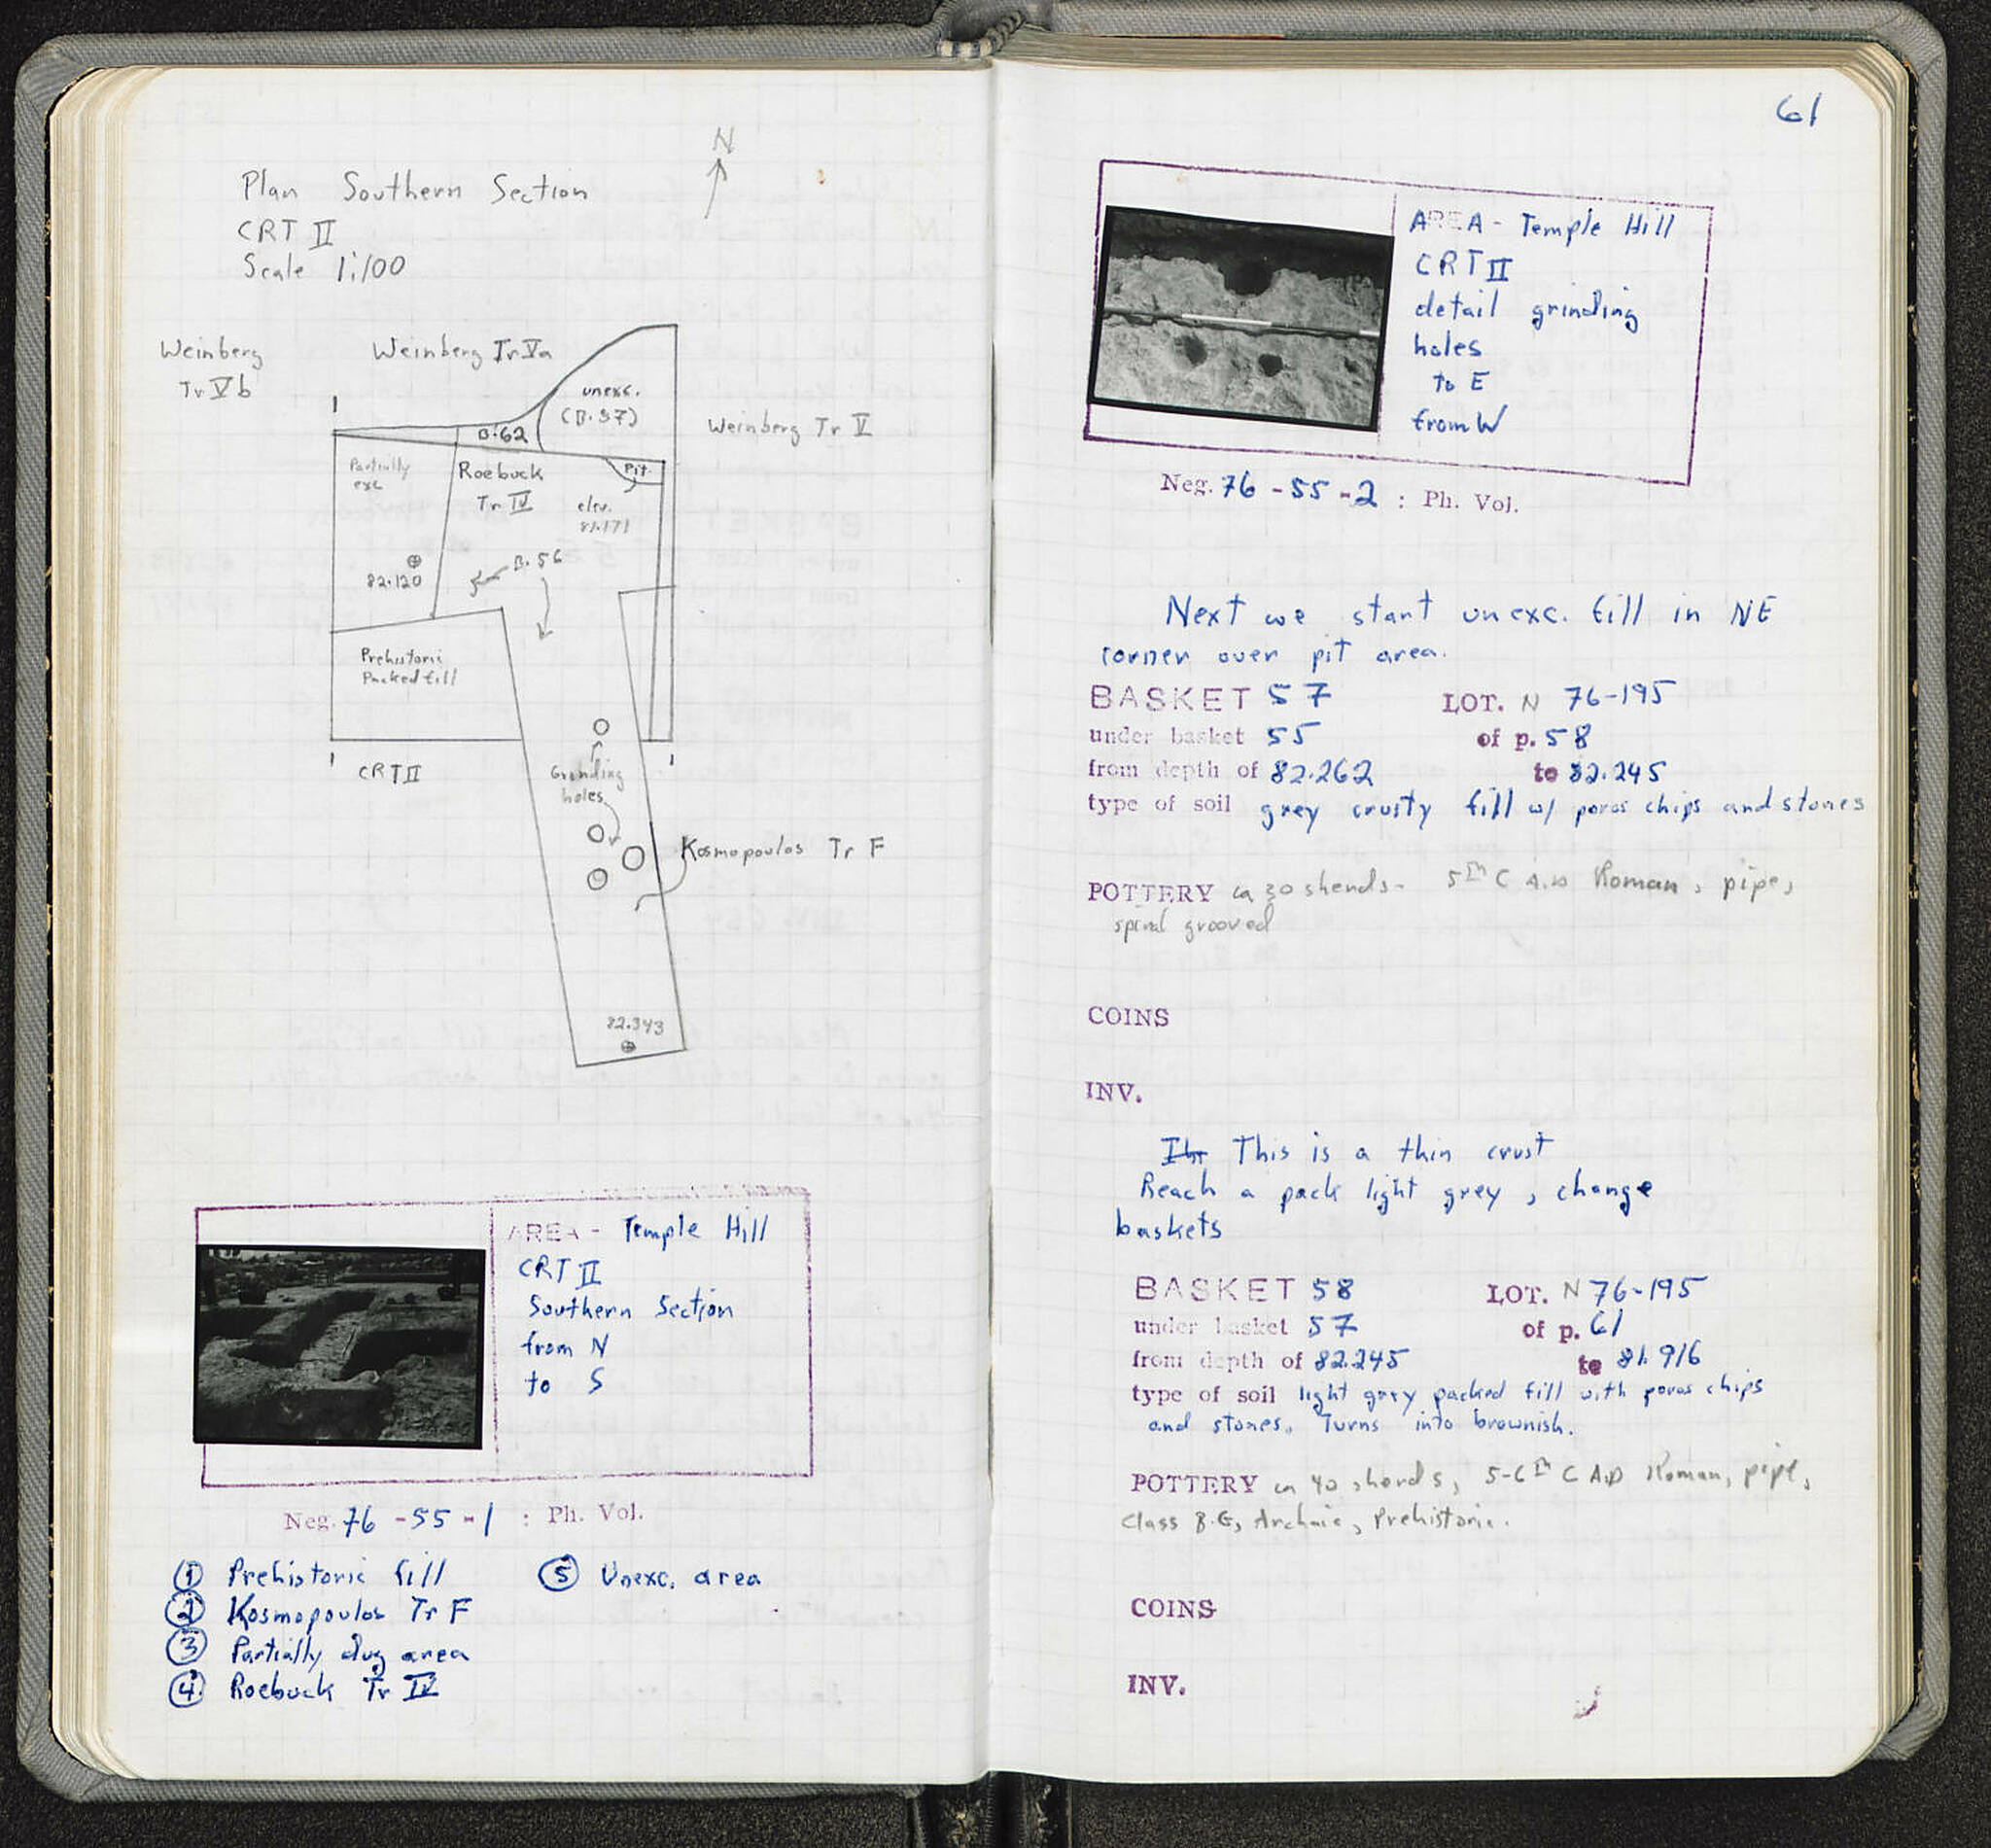 Plan Southern Section
CRT II
Scale 1:100
N
Weinberg
Tr V b
Weinberg Tr Va
unexc.
(B.57)
B.62
Weinberg Tr V
Partially
exc
Roebuck
Tr IV
Pit
elev.
81.171
B.56
82.120
Prehistoric
Packed fill
CRT II
Grinding
holes
Kosmopoulos Tr F
82.343
AREA - Temple Hill
CRT II
Southern Section
from N
to S
Neg. 76 - 55 - 1 : Ph. Vol.
① Prehistoric fill
② Kosmopoulos Tr F
③ Partially dug area
④ Roebuck Tr IV
⑤ Unexc. area
61
AREA - Temple Hill
CRT II
detail grinding
holes
to E
from W
Neg. 76 - 55 - 2 : Ph. Vol.
Next we start unexc. fill in NE
corner over pit area.
BASKET 57 LOT. N 76-195
under basket 55 of p. 58
from depth of 82.262 to 82.245
type of soil grey crusty fill w/ poros chips and stones
POTTERY ca 30 sherds- 5th C A.D Roman, pipe,
spiral grooved
COINS
INV.
This is a thin crust
Reach a pack light grey, change
baskets
BASKET 58 LOT. N 76-195
under basket 57 of p. 61
from depth of 82.245 to 81.916
type of soil light grey packed fill with poros chips
and stones. Turns into brownish.
POTTERY ca 40 sherds, 5-6th C A.D Roman, pipe,
Class B.G, Archaic, Prehistoric.
COINS
INV.